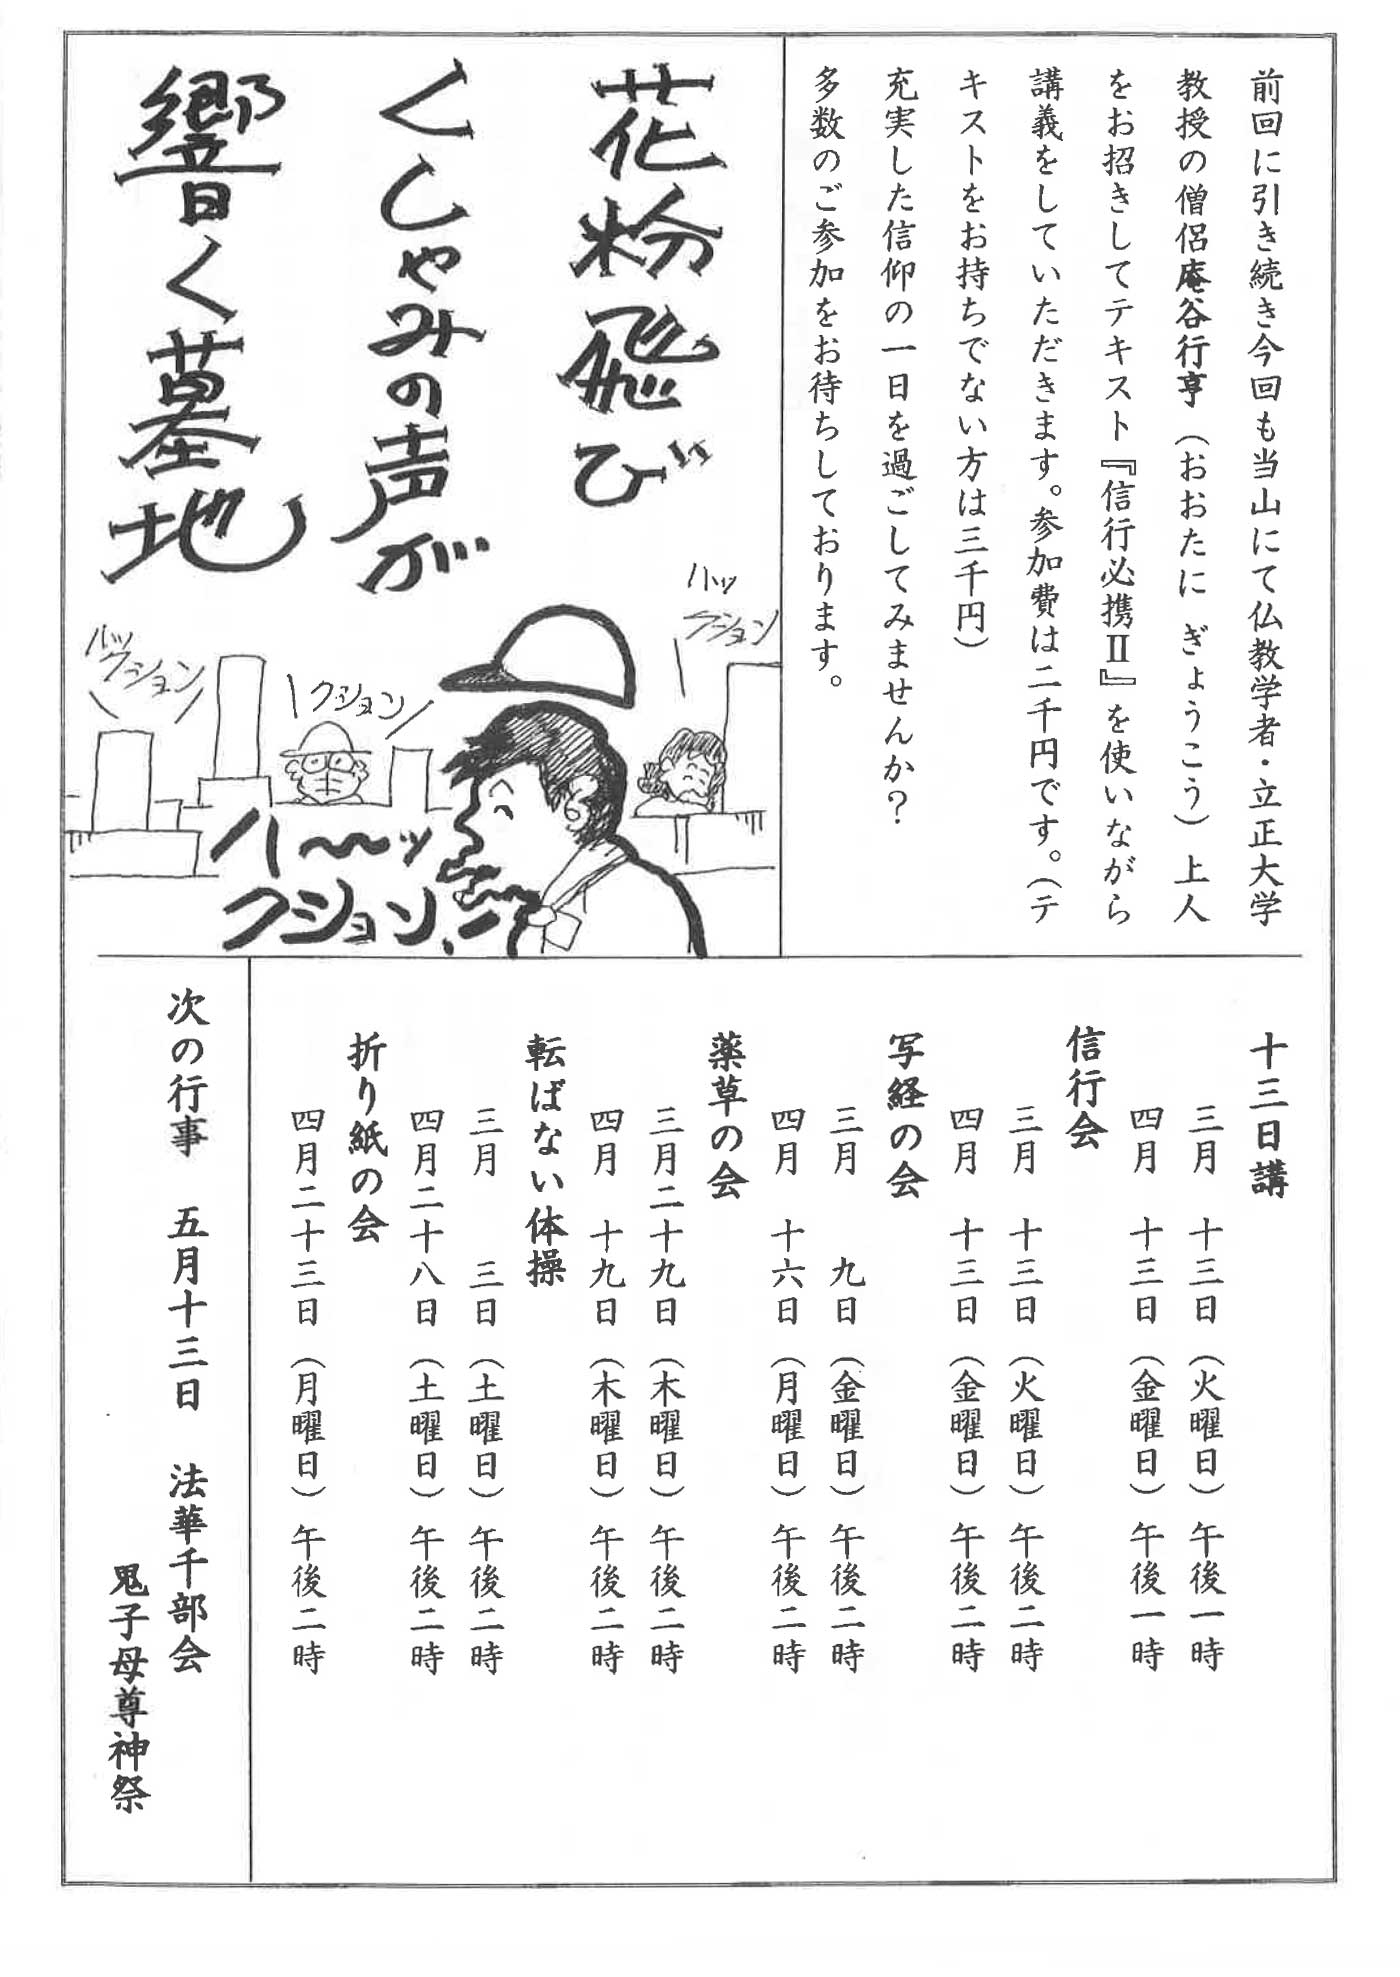 前回に引き続き今回も当山にて仏教学者・立正大学
教授の僧侶庵谷行亨（おおたに ぎょうこう）上人
をお招きしてテキスト『信行必携Ⅱ』を使いながら
講義をしていただきます。参加費は二千円です。（テ
キストをお持ちでない方は三千円）
充実した信仰の一日を過ごしてみませんか？
多数のご参加をお待ちしております。
花粉飛び
くしゃみの声が
響く墓地
ハッ
クション
クション
ハッ
クション
ハ〜〜ッ
クション！
十三日講
三月 十三日（火曜日）午後一時
四月 十三日（金曜日）午後一時
信行会
三月 十三日（火曜日）午後二時
四月 十三日（金曜日）午後二時
写経の会
三月 九日（金曜日）午後二時
四月 十六日（月曜日）午後二時
薬草の会
三月二十九日（木曜日）午後二時
四月 十九日（木曜日）午後二時
転ばない体操
三月 三日（土曜日）午後二時
四月二十八日（土曜日）午後二時
折り紙の会
四月二十三日（月曜日）午後二時
次の行事 五月十三日 法華千部会
鬼子母尊神祭